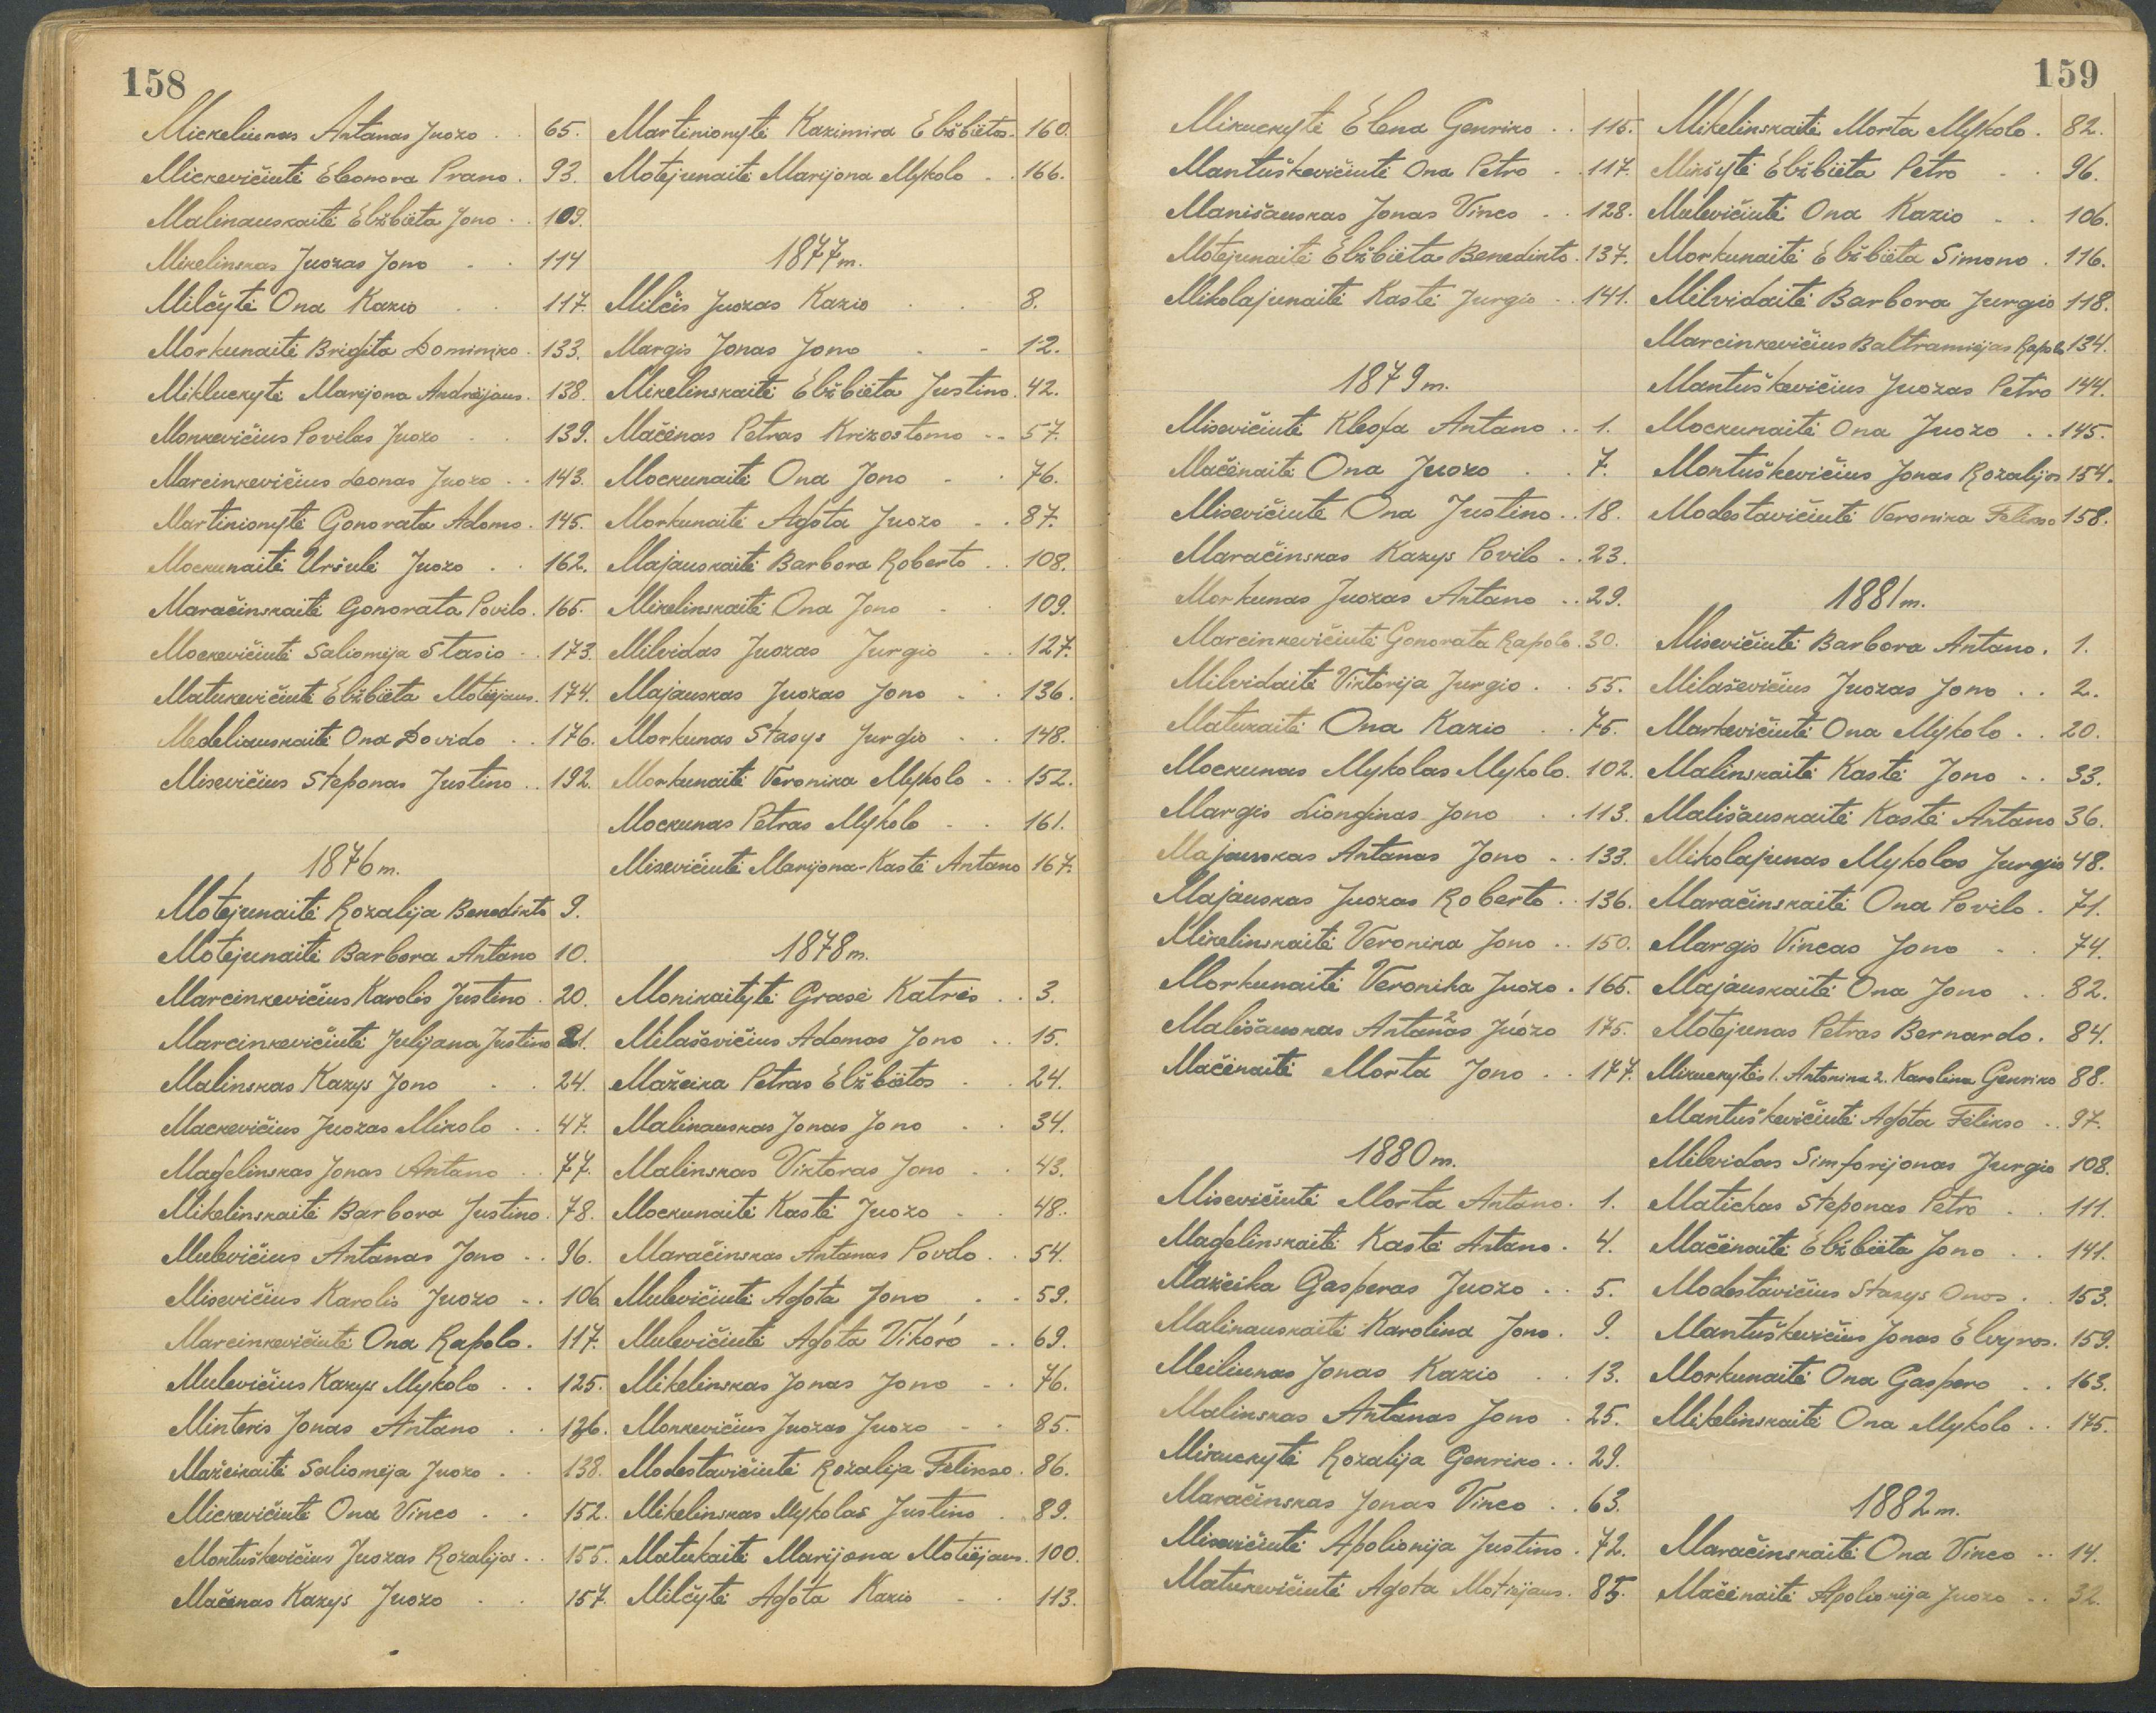 158
Mickeliunas Antanas Juozo . . 65.
Mickevičiutė Eleonora Prano . 93.
Malinauskaitė Elžbieta Jono . . 109.
Mikelinskas Juozas Jono . . 114
Milčytė Ona Kazio . . 117.
Morkunaitė Brigita Dominyko . 133.
Mikluckytė Marijona Andriejaus . 138.
Monkevičius Povilas Juozo . . 139.
Marcinkevičius Leonas Juozo . . 143.
Martinionytė Gonorata Adomo . 145.
Mockunaitė Uršulė Juozo . . 162.
Maračinskaitė Gonorata Povilo . 165.
Mockevičiutė Saliomija Stasio . . 173.
Matukevičiutė Elžbieta Motiejaus . 174.
Medeliauskaitė Ona Dovido . . 176.
Misevičius Steponas Justino . . 192.
1876 m.
Motejunaitė Rozalija Benedikto 9.
Motejunaitė Barbora Antano 10.
Marcinkevičius Karolis Justino . 20.
Marcinkevičiutė Julijana Justino 21.
Malinskas Kazys Jono . . 24.
Mackevičius Juozas Mikolo . . 47.
Magelinskas Jonas Antano . . 77.
Mikelinskaitė Barbora Justino . 78.
Mulevičius Antanas Jono . . 96.
Misevičius Karolis Juozo . . 106
Marcinkevičiutė Ona Rapolo . 117.
Mulevičius Kazys Mykolo . . 125.
Minteris Jonas Antano . . 126.
Mažeikaitė Saliomėja Juozo . . 138.
Mickevičiutė Ona Vinco . . 152.
Montuškevičius Juozas Rozalijos . . 155.
Mačėnas Kazys Juozo . . 157.
Martinionytė Kazimira Elžbietos . 160.
Motejunaitė Marijona Mykolo . . 166.
1877 m.
Milčis Juozas Kazio . . 8.
Margis Jonas Jono . . 12.
Mikelinskaitė Elžbieta Justino . 42.
Mačėnas Petras Krizostomo . . 57.
Mockunaitė Ona Jono . . 76.
Morkunaitė Agota Juozo . . 87.
Majauskaitė Barbora Roberto . . 108.
Mikelinskaitė Ona Jono . . 109.
Milvidas Juozas Jurgio . . 127.
Majauskas Juozas Jono . . 136.
Morkunas Stasys Jurgio . . 148.
Morkunaitė Veronika Mykolo . . 152.
Mockunas Petras Mykolo . . 161.
Misevičiutė Marijona-Kastė Antano 167.
1878 m.
Monikaitytė Grasė Katrės . . 3.
Milaševičius Adomas Jono . . 15.
Mažeika Petras Elžbietos . . 24.
Malinauskas Jonas Jono . . 34.
Malinskas Viktoras Jono . . 43.
Mockunaitė Kastė Juozo . . 48.
Maračinskas Antanas Povilo . . 54.
Mulevičiutė Agota Jono . . 59.
Mulevičiutė Agota Vikóró . . 69.
Mikelinskas Jonas Jono . . 76.
Monkevičius Juozas Juozo . . 85.
Modestavičiutė Rozalija Felikso . 86.
Mikelinskas Mykolas Justino . 89.
Matukaitė Marijona Motiejaus . 100.
Milčytė Agota Kazio . . 113.
159
Mikuckytė Elena Genriko . . 115.
Mantuškevičiutė Ona Petro . . 117.
Manišauskas Jonas Vinco . . 128.
Motejunaitė Elžbieta Benedikto . 137.
Mikolajunaitė Kastė Jurgio . . 141.
1879 m.
Misevičiutė Kleofa Antano . . 1.
Mačėnaitė Ona Juozo . . 7.
Misevičiutė Ona Justino . . 18.
Maračinskas Kazys Povilo . . 23.
Morkunas Juozas Antano . . 29.
Marcinkevičiutė Gonorata Rapolo . 30.
Milvidaitė Viktorija Jurgio . . 55.
Matukaitė Ona Kazio . . 75.
Mockunas Mykolas Mykolo . 102.
Margis Liongina​s Jono . . 113.
Majauskas Antanas Jono . . 133.
Majauskas Juozas Roberto . . 136.
Mikelinskaitė Veronika Jono . . 150.
Morkunaitė Veronika Juozo . 165.
Mališauskas Antanas 2 Juozo 175.
Mačėnaitė Morta Jono . . 177.
1880 m.
Misevičiutė Morta Antano . 1.
Magelinskaitė Kastė Antano . 4.
Mažeika Gasperas Juozo . . 5.
Malinauskaitė Karolina Jono . 9.
Meiliunas Jonas Kazio . . 13.
Malinskas Antanas Jono . 25.
Mikuckytė Rozalija Genriko . . 29.
Maračinskas Jonas Vinco . . 63.
Misevičiutė Apolionija Justino . 72.
Matukevičiutė Agota Motiejaus . 85.
Mikelinskaitė Morta Mykolo . 82.
Mikšytė Elžbieta Petro . . 96.
Mulevičiutė Ona Kazio . . 106.
Morkunaitė Elžbieta Simono . 116.
Milvidaitė Barbora Jurgio 118.
Marcinkevičius Baltramiejas Rapolo 134.
Mantuškevičius Juozas Petro 144.
Mockunaitė Ona Juozo . . 145.
Montuškevičius Jonas Rozalijos 154.
Modestavičiutė Veronika Felikso 158.
1881 m.
Misevičiutė Barbora Antano . 1.
Milaševičius Juozas Jono . . 2.
Markevičiutė Ona Mykolo . . 20.
Malinskaitė Kastė Jono . . 33.
Mališauskaitė Kastė Antano 36.
Mikolajunas Mykolas Jurgio 48.
Maračinskaitė Ona Povilo . 71.
Margis Vincas Jono . . 74.
Majauskaitė Ona Jono . . 82.
Motejunas Petras Bernardo . 84.
Mikuckytės 1. Antonina 2. Karolina Genriko 88.
Mantuškevičiutė Agota Felikso . . 97.
Milvidas Simforijonas Jurgio 108.
Matickas Steponas Petro . . 111.
Mačėnaitė Elžbieta Jono . . 141.
Modestavičius Stasys Onos . . 153.
Mantuškevičius Jonas Elzyros . 159.
Morkunaitė Ona Gaspero . . 163.
Mikelinskaitė Ona Mykolo . . 175.
1882 m.
Maračinskaitė Ona Vinco . . 14.
Mačėnaitė Apolionija Juozo . . 32.